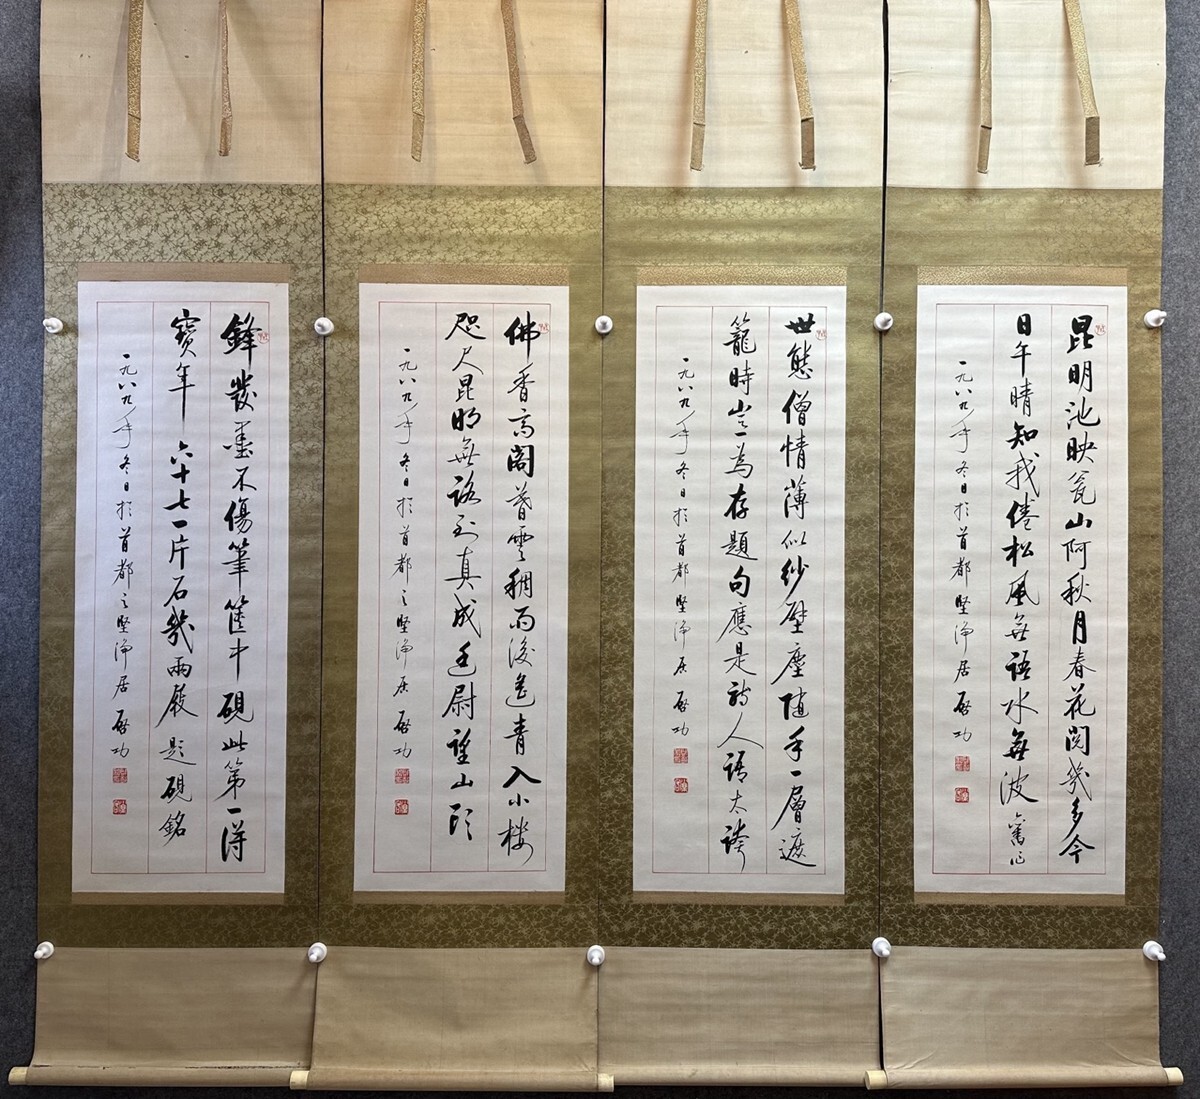 昆明池映瓮山阿秋月春花閱幾多今
日午晴知我倦松風無語水無波 舊作
一九八九年冬日於首都之堅淨居 啓功
世態僧情薄似紗壁塵随手一層遮
籠時豈為存題句應是詩人語太誇
一九八九年冬日於首都之堅淨居 啓功
佛香高閣暮雲稠雨後遙青入小樓
咫尺昆明無路到真成廷尉望山頭
一九八九年冬日於首都之堅淨居 啓功
鋒發墨不傷筆篋中硯此第一得
寶年六十七一片石幾兩屐題硯銘
一九八九年冬日於首都之堅淨居 啓功